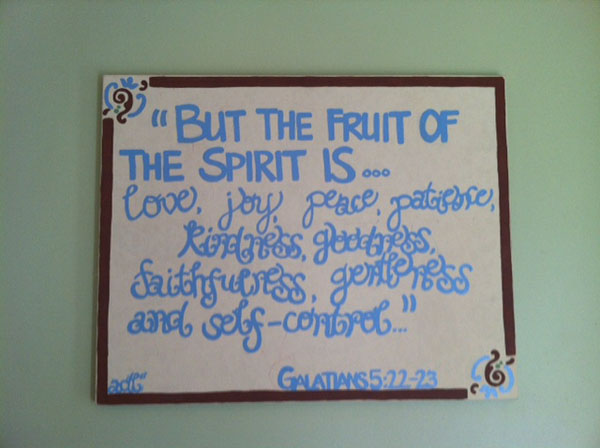 "BUT THE FRUIT OF
THE SPIRIT IS...
love, joy, peace, patience,
kindness, goodness,
faithfulness, gentleness
and self-control..."
GALATIANS 5:22-23